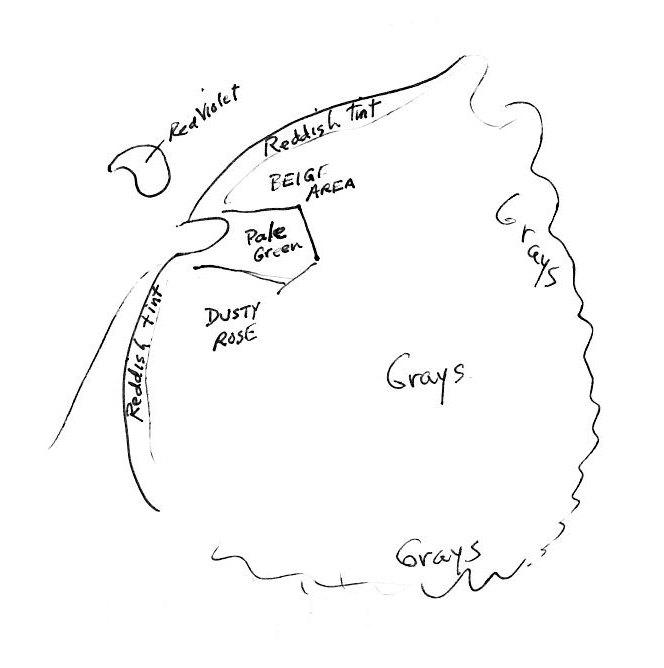 Red Violet
Reddish Tint
BEIGE
AREA
Pale
Green
Grays
DUSTY
ROSE
Reddish tint
Grays
Grays